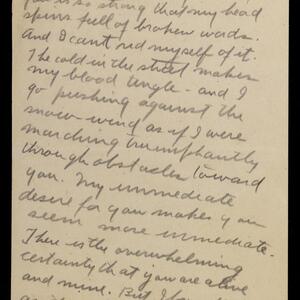 you is so strong that my head
spins full of broken words.
And I can't rid myself of it.
The cold in the street makes
my blood tingle - and I
go pushing against the
snow-wind as if I were
marching triumphantly
through obstacles toward
you. My immediate
desire for you makes you
seem more immediate.
There is the overwhelming
certainty that you are alive
and mine. But I